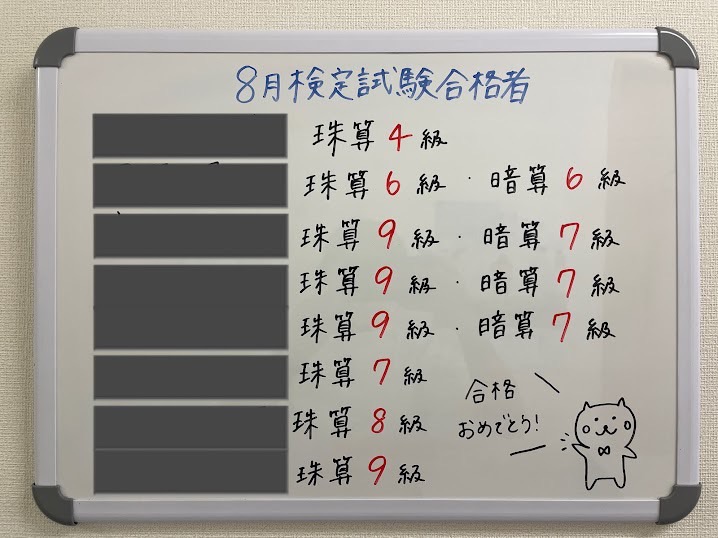 8月検定試験合格者
珠算4級
珠算6級・暗算6級
珠算9級・暗算7級
珠算9級・暗算7級
珠算9級・暗算7級
珠算7級
珠算8級
珠算9級
合格
おめでとう!